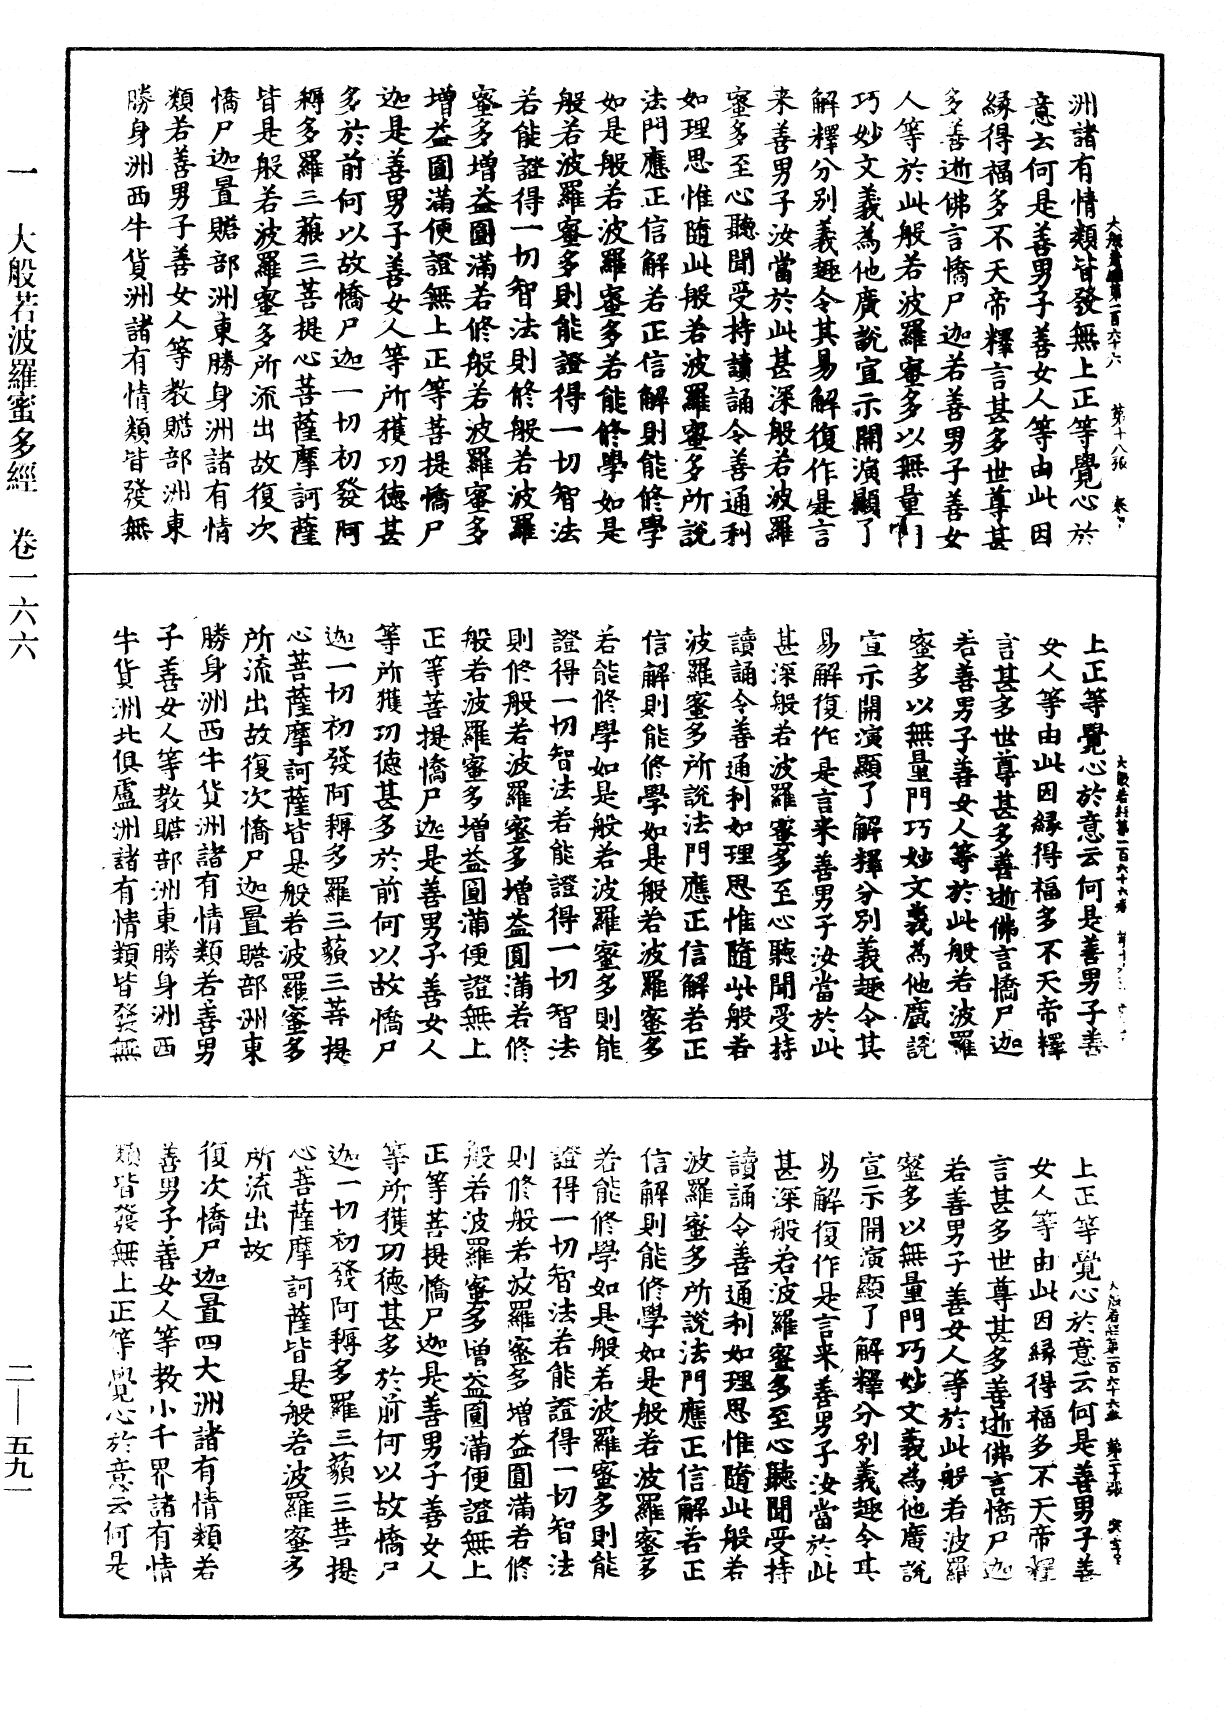 大般若經第一百六十六 第十八張
洲諸有情類皆發無上正等覺心於
意云何是善男子善女人等由此因
緣得福多不天帝釋言甚多世尊甚
多善逝佛言憍尸迦若善男子善女
人等於此般若波羅蜜多以無量門
巧妙文義為他廣說宣示開演顯了
解釋分別義趣令其易解復作是言
来善男子汝當於此甚深般若波羅
蜜多至心聽聞受持讀誦令善通利
如理思惟隨此般若波羅蜜多所說
法門應正信解若正信解則能修學
如是般若波羅蜜多若能修學如是
般若波羅蜜多則能證得一切智法
若能證得一切智法則修般若波羅
蜜多增益圓滿若修般若波羅蜜多
增益圓滿便證無上正等菩提憍尸
迦是善男子善女人等所獲功德甚
多於前何以故憍尸迦一切初發阿
耨多羅三藐三菩提心菩薩摩訶薩
皆是般若波羅蜜多所流出故復次
憍尸迦置贍部洲東勝身洲諸有情
類若善男子善女人等教贍部洲東
勝身洲西牛貨洲諸有情類皆發無
大般若經第一百六十六卷
上正等覺心於意云何是善男子善
女人等由此因緣得福多不天帝釋
言甚多世尊甚多善逝佛言憍尸迦
若善男子善女人等於此般若波羅
蜜多以無量門巧妙文義為他廣說
宣示開演顯了解釋分別義趣令其
易解復作是言来善男子汝當於此
甚深般若波羅蜜多至心聽聞受持
讀誦令善通利如理思惟隨此般若
波羅蜜多所說法門應正信解若正
信解則能修學如是般若波羅蜜多
若能修學如是般若波羅蜜多則能
證得一切智法若能證得一切智法
則修般若波羅蜜多增益圓滿若修
般若波羅蜜多增益圓滿便證無上
正等菩提憍尸迦是善男子善女人
等所獲功德甚多於前何以故憍尸
迦一切初發阿耨多羅三藐三菩提
心菩薩摩訶薩皆是般若波羅蜜多
所流出故復次憍尸迦置贍部洲東
勝身洲西牛貨洲諸有情類若善男
子善女人等教贍部洲東勝身洲西
牛貨洲北俱盧洲諸有情類皆發無
大般若經第一百六十六卷 第二十張
上正等覺心於意云何是善男子善
女人等由此因緣得福多不天帝釋
言甚多世尊甚多善逝佛言憍尸迦
若善男子善女人等於此般若波羅
蜜多以無量門巧妙文義為他廣說
宣示開演顯了解釋分別義趣令其
易解復作是言来善男子汝當於此
甚深般若波羅蜜多至心聽聞受持
讀誦令善通利如理思惟隨此般若
波羅蜜多所說法門應正信解若正
信解則能修學如是般若波羅蜜多
若能修學如是般若波羅蜜多則能
證得一切智法若能證得一切智法
則修般若波羅蜜多增益圓滿若修
般若波羅蜜多增益圓滿便證無上
正等菩提憍尸迦是善男子善女人
等所獲功德甚多於前何以故憍尸
迦一切初發阿耨多羅三藐三菩提
心菩薩摩訶薩皆是般若波羅蜜多
所流出故
復次憍尸迦置四大洲諸有情類若
善男子善女人等教小千界諸有情
類皆發無上正等覺心於意云何是
一 大般若波羅蜜多經 卷一六六
二—五九一